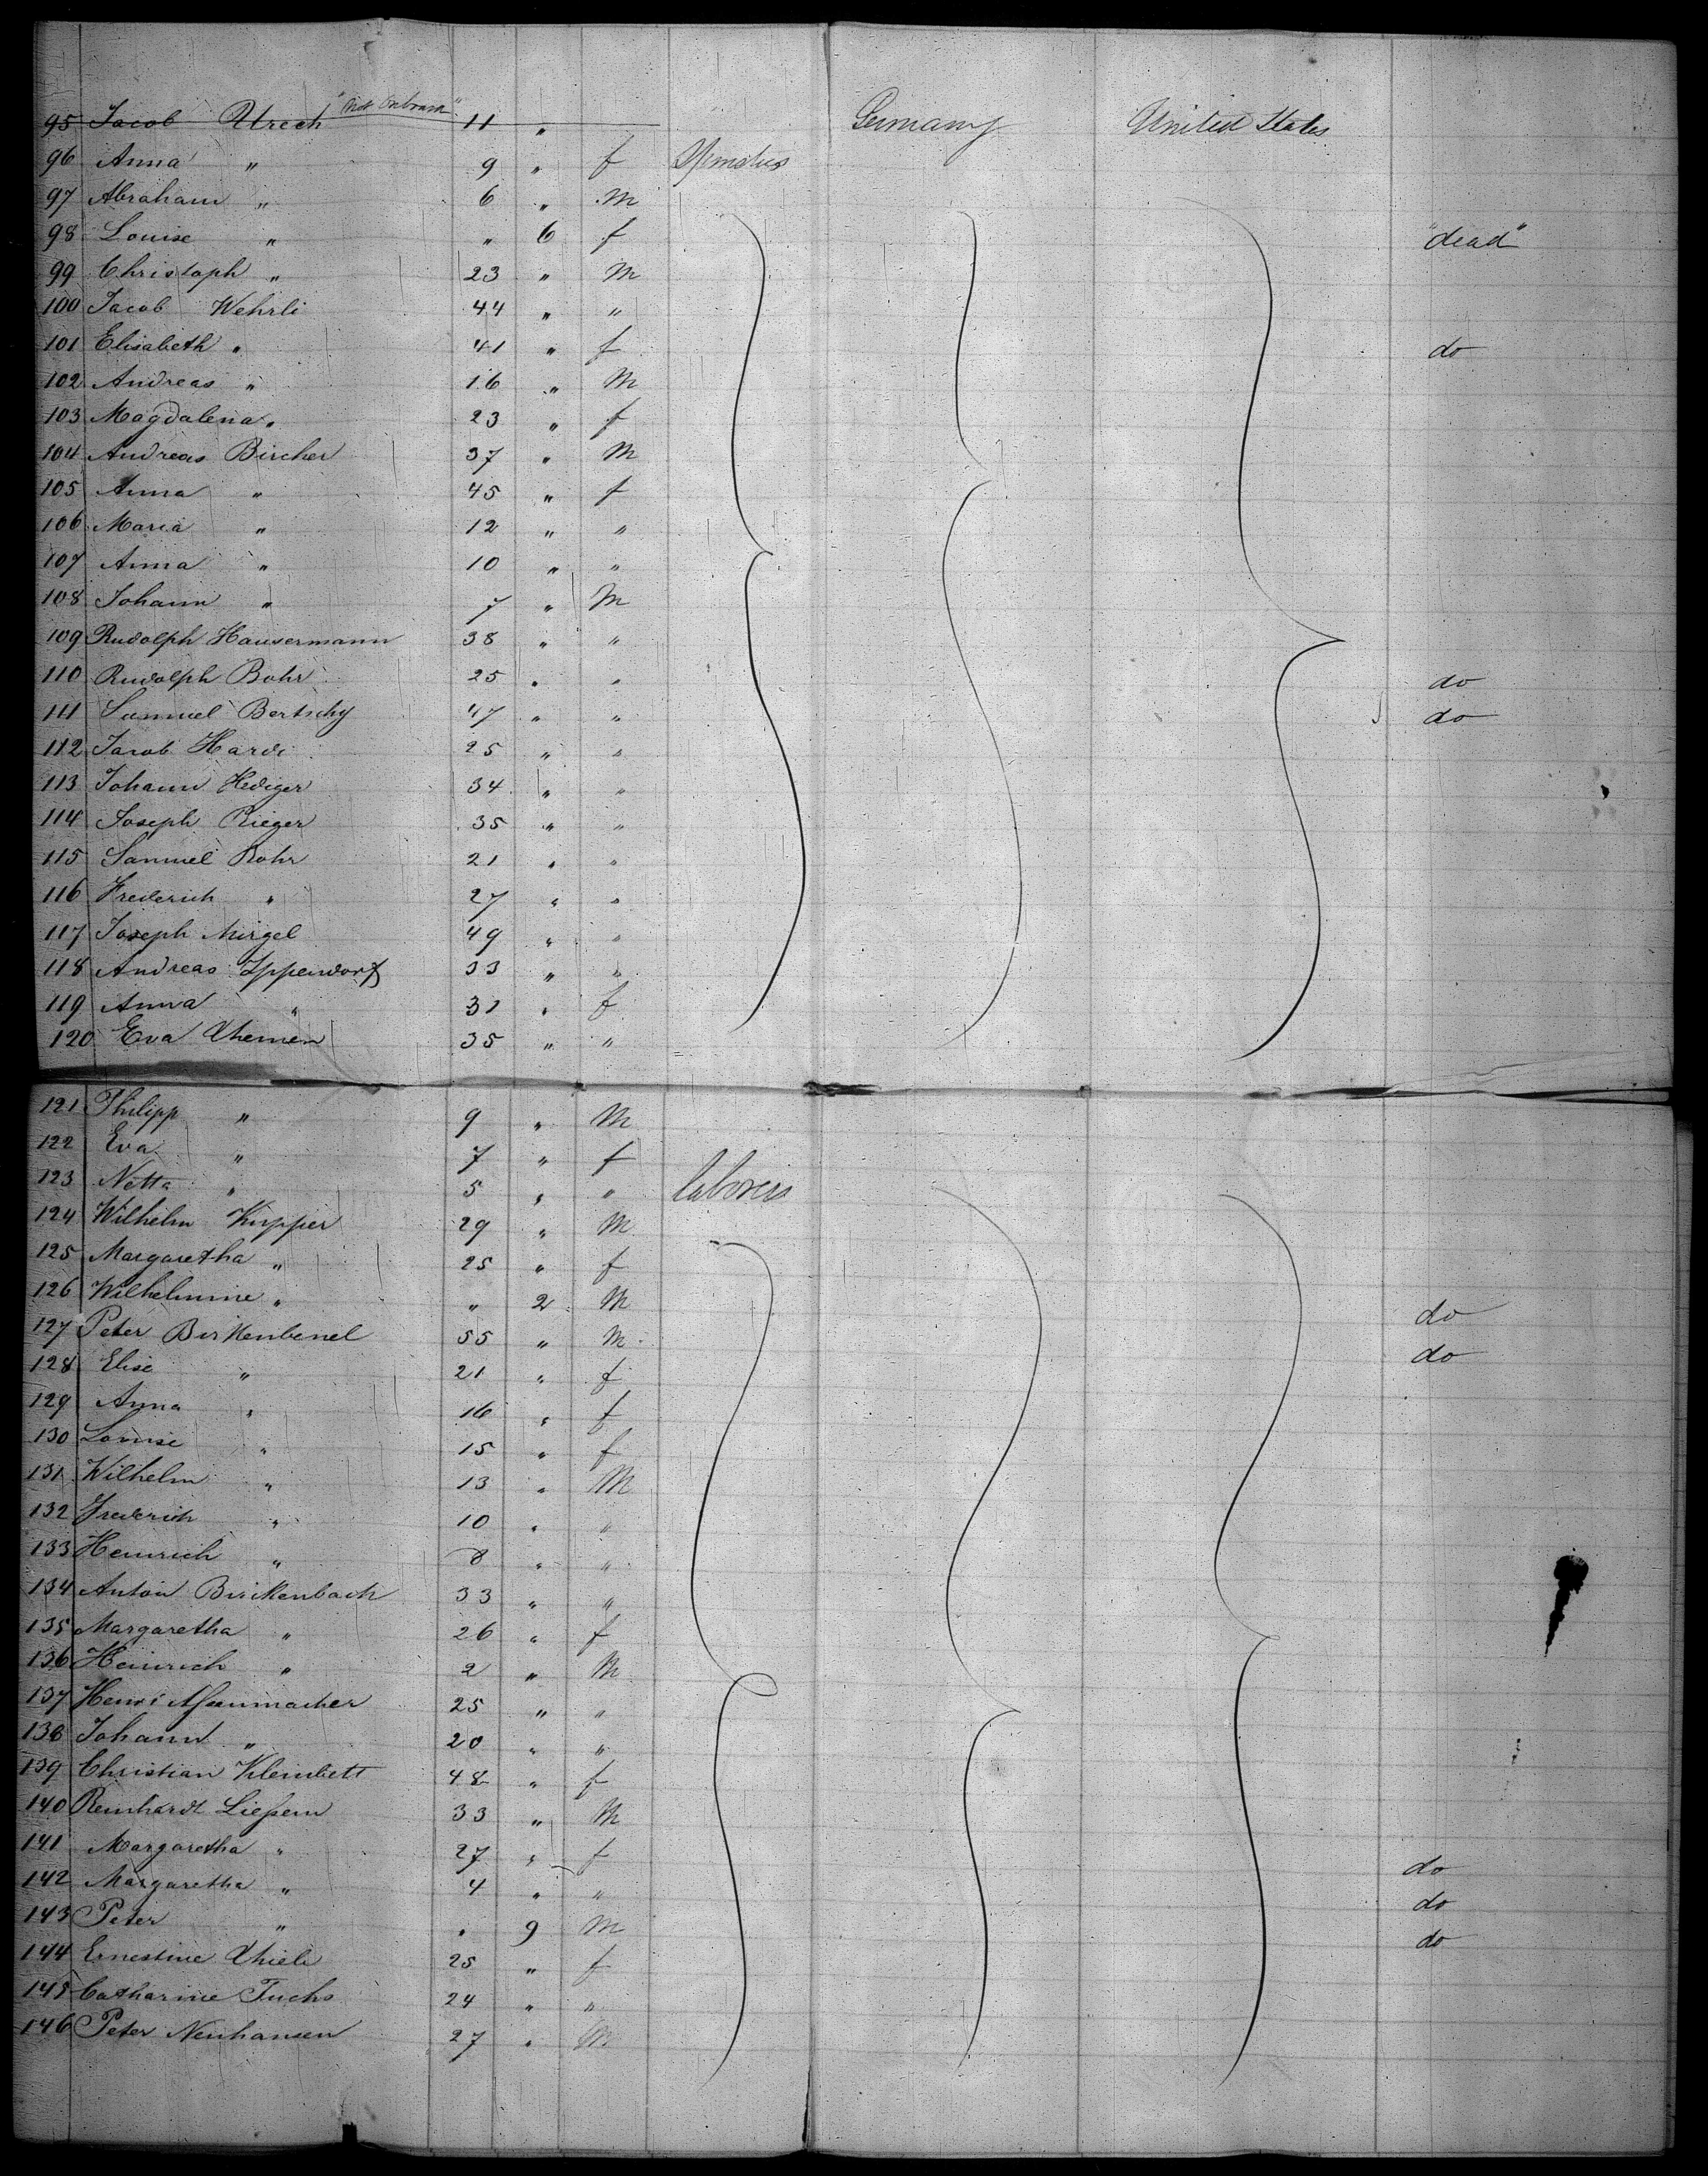 95 Jacob Urech "Not Onboard" 11 " Germany United States
96 Anna " 9 " f
97 Abraham " 6 " M
98 Louise " " 6 f "dead"
99 Christoph " 23 " M
100 Jacob Wehrli 44 " "
101 Elisabeth " 41 " f do
102 Andreas " 16 " M
103 Magdalena " 23 " f
104 Andreas Bircher 37 " M
105 Anna " 45 " f
106 Maria " 12 " "
107 Anna " 10 " "
108 Johann " 7 " M
109 Rudolph Hausermann 38 " "
110 Rudolph Bohr 25 " " do
111 Samuel Bertschy 47 " " do
112 Jacob Hardi 25 " "
113 Johann Hediger 34 " "
114 Joseph Rieger 35 " "
115 Samuel Rohr 21 " "
116 Frederich " 27 " "
117 Joseph Mirgel 49 " "
118 Andreas Ippendorf 33 " "
119 Anna " 31 " f
120 Eva Themen 35 " "
121 Philipp " 9 " M
122 Eva " 7 " f
123 Netta " 5 " " laborers
124 Wilhelm Kupper 29 " M
125 Margaretha " 25 " f
126 Wilhelmine " " 2 M do
127 Peter Birkenbenel 55 " M do
128 Elise " 21 " f
129 Anna " 16 " f
130 Louise " 15 " f
131 Wilhelm " 13 " M
132 Frederich " 10 " "
133 Heinrich " 8 " "
134 Anton Birckenbach 33 " "
135 Margaretha " 26 " f
136 Heinrich " 2 " M
137 Henri 25 " "
138 Johann " 20 " "
139 Christian Kleinbett 48 " f
140 Reinhardt Liessem 33 " M
141 Margaretha " 27 " f do
142 Margaretha " 4 " " do
143 Peter " " 9 M do
144 Ernestine Thiele 25 " f
145 Catharine Fuchs 24 " "
146 Peter Neuhausen 27 " M